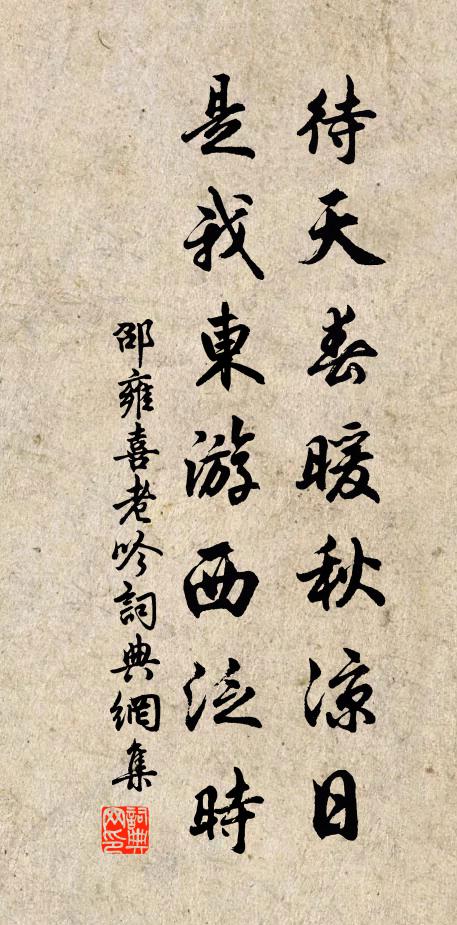 待天春暖秋涼日
是我東游西泛時
邵雍喜老吟詞典網集
詞典网印